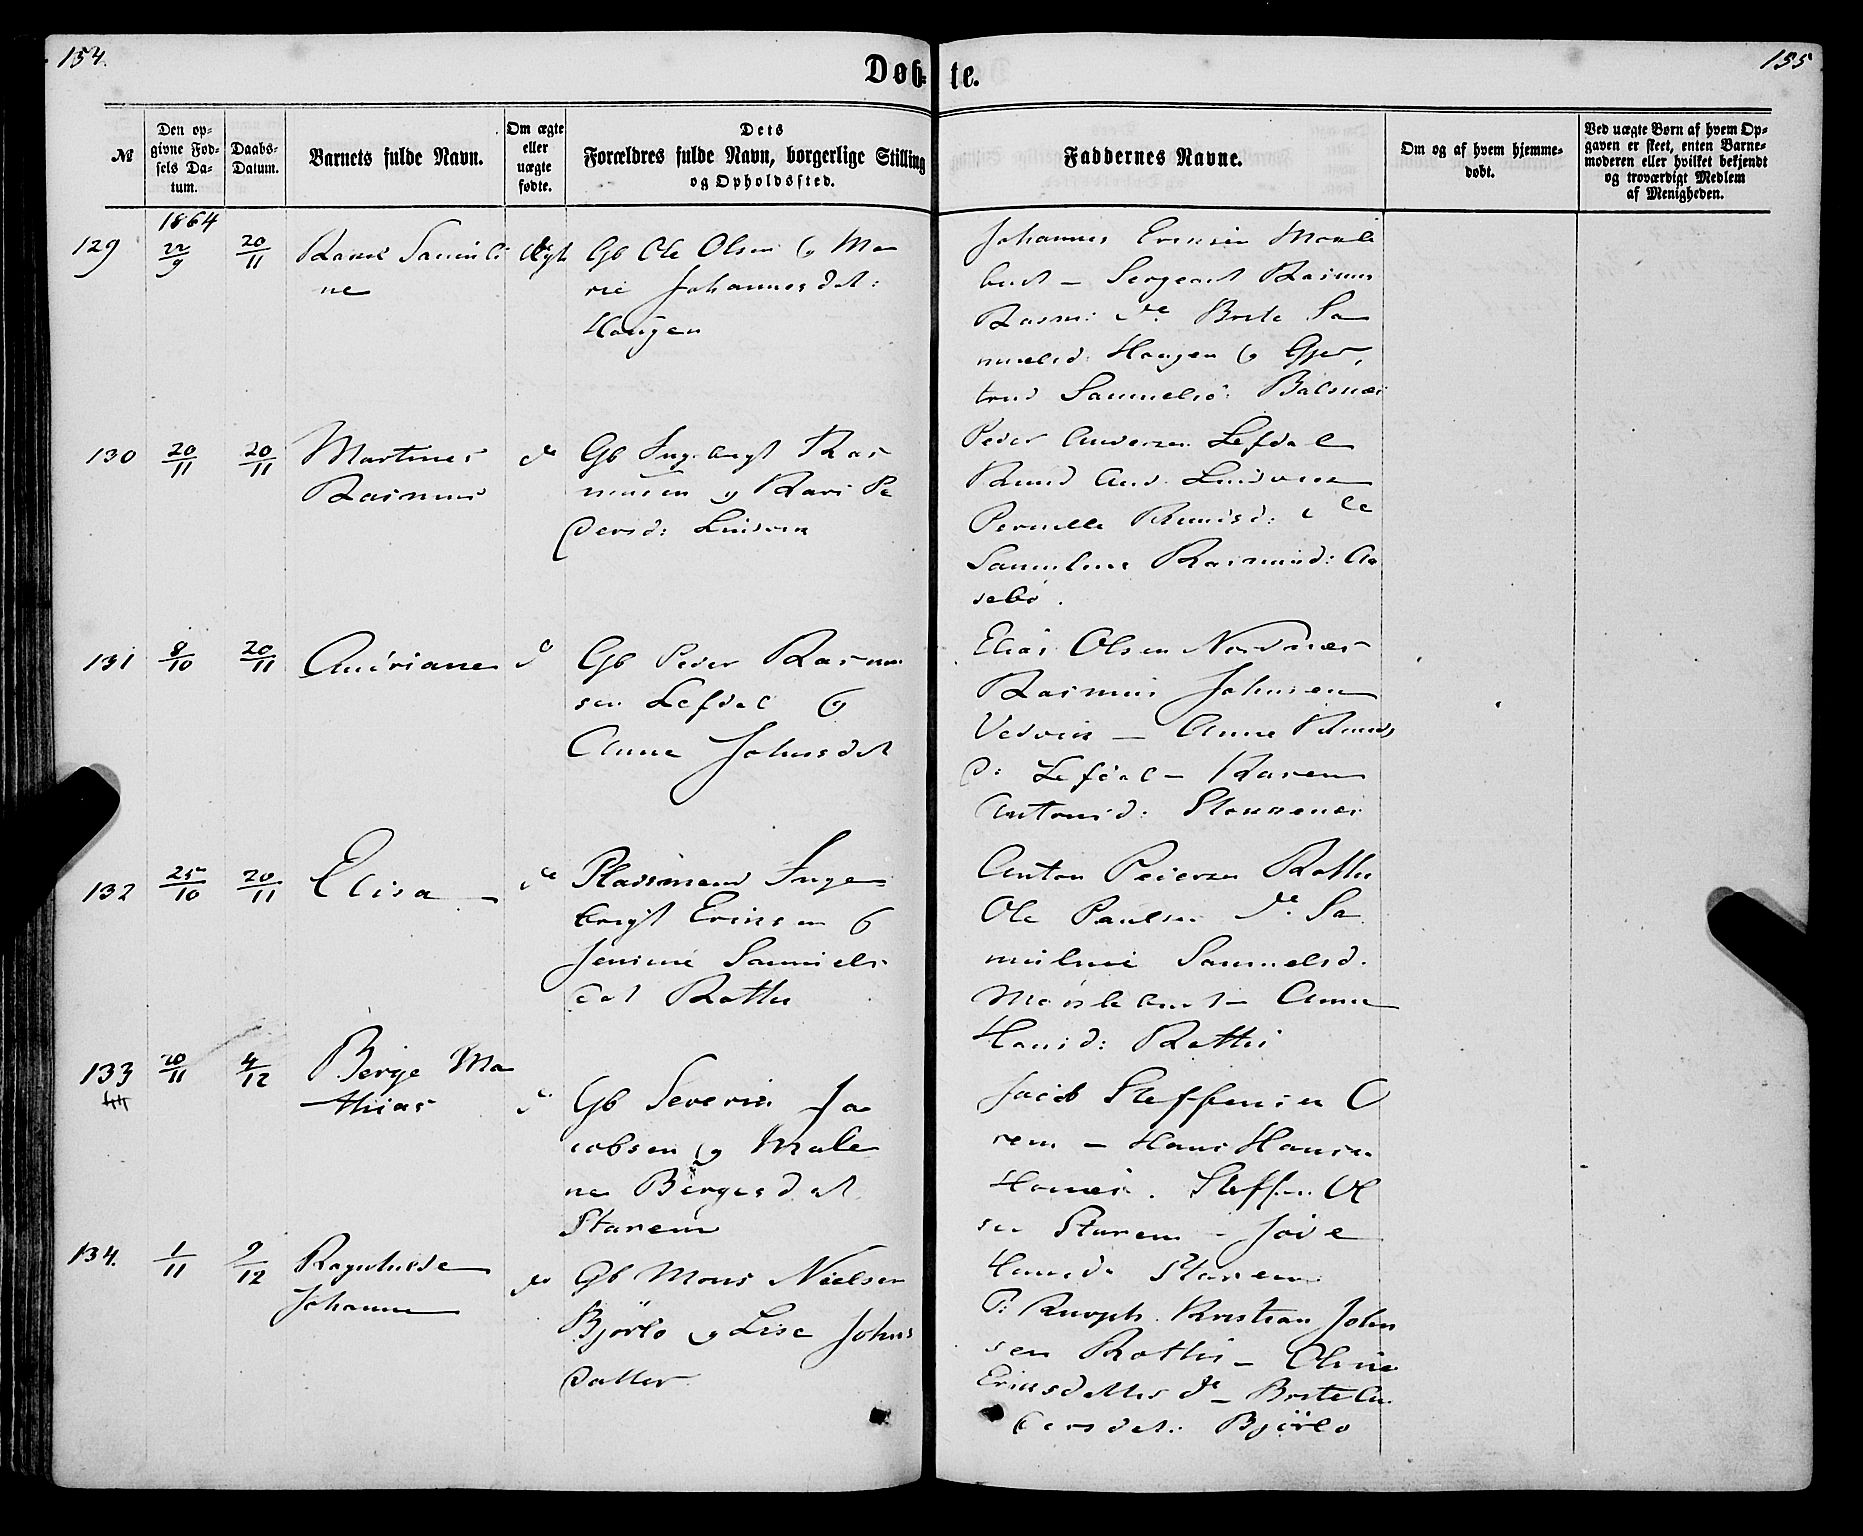 154.
155
Døb-
te.
№
Den op-
givne Fød-
sels Da-
tum.
Daabs-
Datum.
Barnets fulde Navn.
Om ægte
eller
uægte
fødte.
Dets
Forældres fulde Navn, borgerlige Stilling
og Opholdssted.
Faddernes Navne.
Om og af hvem hjemme-
døbt.
Ved uægte Børn af hvem Op-
gaven er skeet, enten Barne-
moderen eller hvilket bekjendt
og troværdigt Medlem
af Menigheden.
1864
129
22/9
20/11
Samuli
ne
Ægte
Gb Ole Olsen og Ma
rie Johannesdat:
Haugen
Johannes
Sergeant Rasmus
Rasm: do Brite Sa
muelsd: Haugen og Gjer
trud Samuelsd: Balsnæs
130
20/11
20/11
Martines
Rasmus
do
Gb Ingebrigt Ras
musen og Kari Pe
dersd: Lindvig
Peder Andersen Lefdal
Knud And. Lindvig
Pernille Knudsd: do
Rasmusd: Aa
sebø.
131
8/10
20/11
Andriane
do
Gb Peder Rasmu
sen Lefdal og
Anne Johnsdat
Elias Olsen Nordnæs
Rasmus Johnsen
Anne Knuds
d: Lefdal – Karen
Antonid:
132
25/10
20/11
Elisa –
do
Pladsmand Inge
brigt Ericsen og
Jensine Samuels
dat Rothe
Anton Pedersen Rothe
Ole Paulsen do. Sa
muline Samuelsd.
Anne
Hansd: Rothe
133
20/11
4/12
Børge Ma
thias
do
Gb Severin Ja
cobsen og Male
ne Børgesdat
Starem
Jacob Steffensen O
rem – Hans Hansen
Steffen Ol
sen Starem –
Hansd: Starem
134.
1/11
9/12
Ragnhilde
Johanne
do
Gb Mons Nielsen
Bjørlo og Lise Johns
datter
P: Knoph. Kristian John
sen Rothe – Oline
Ericsdatter do – Brite An
dersdat: Bjørlo